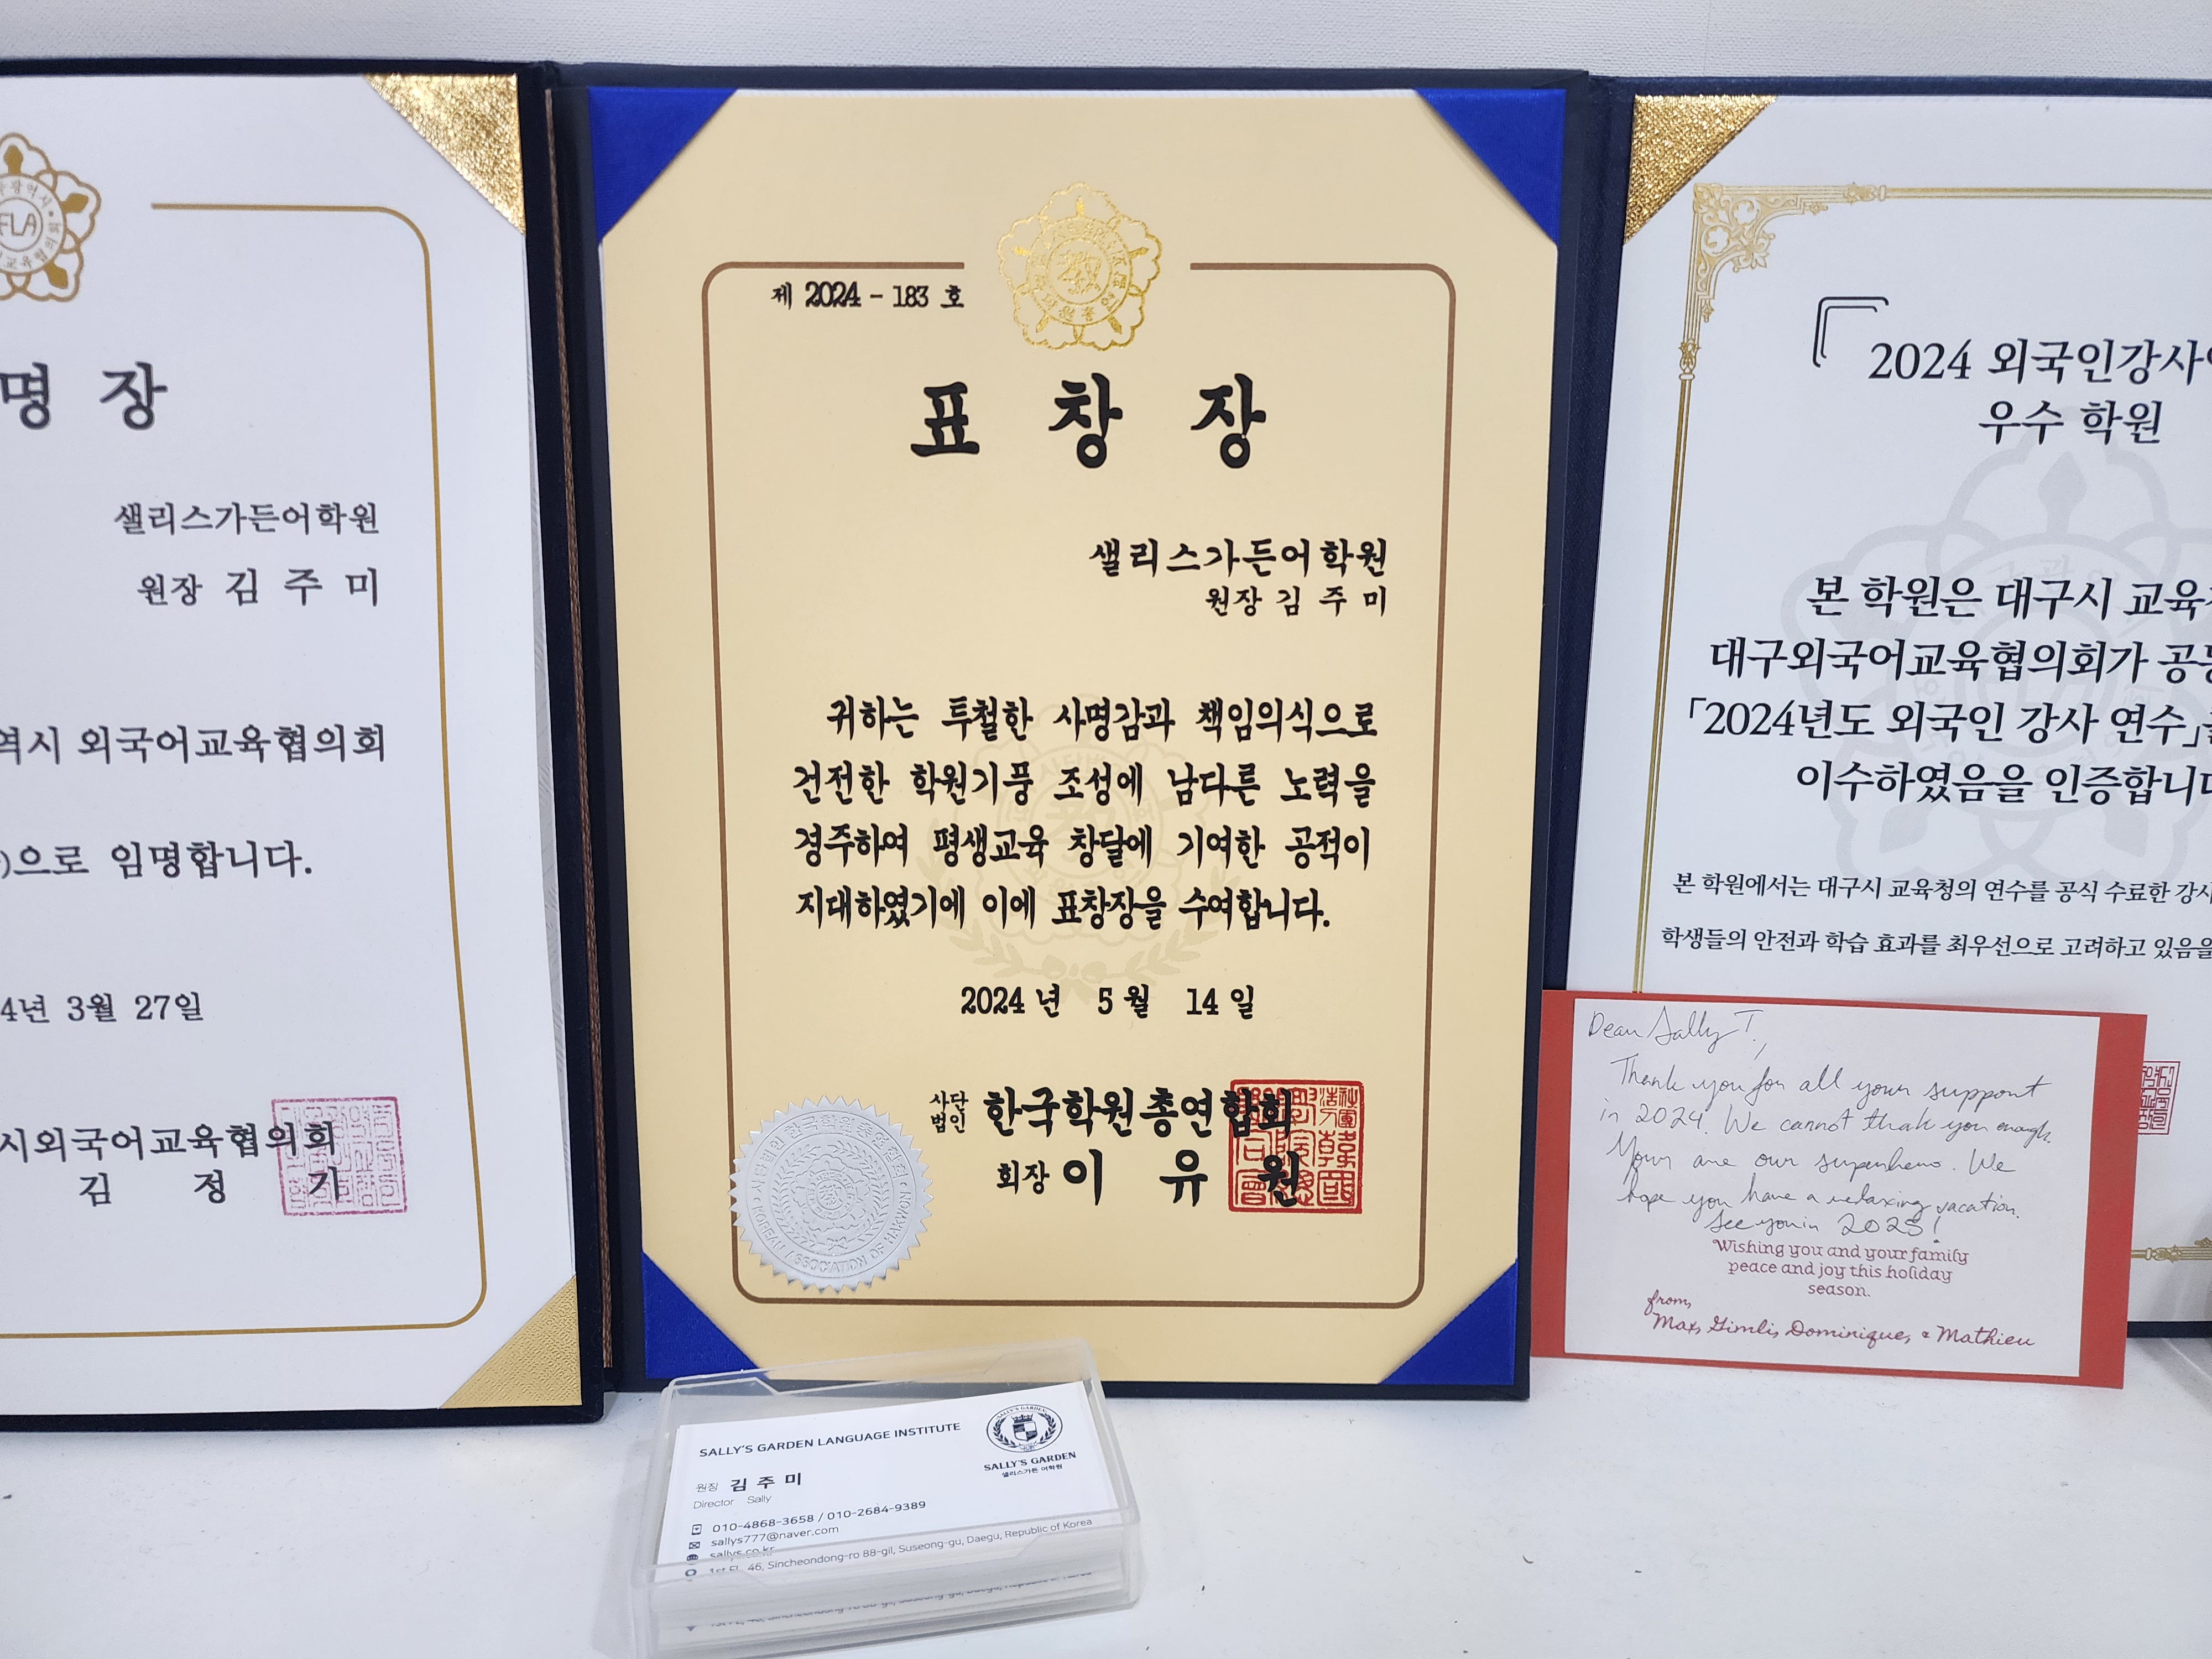 FLA
명 장
샐리스가든어학원
원장 김 주 미
역시 외국어교육협의회
)으로 임명합니다.
4년 3월 27일
시외국어교육협의회
김 정 기
제 2024 - 183 호
표 창 장
샐리스가든어학원
원장 김 주 미
귀하는 투철한 사명감과 책임의식으로
건전한 학원기풍 조성에 남다른 노력을
경주하여 평생교육 창달에 기여한 공적이
지대하였기에 이에 표창장을 수여합니다.
2024년 5월 14일
사단법인 한국학원총연합회
회장 이 유 원
KOREAN ASSOCIATION OF HAKWON
2024 외국인강사
우수 학원
본 학원은 대구시 교육
대구외국어교육협의회가 공
「2024년도 외국인 강사 연수」
이수하였음을 인증합니
본 학원에서는 대구시 교육청의 연수를 공식 수료한 강
학생들의 안전과 학습 효과를 최우선으로 고려하고 있음을
Dear Sally T.,
Thank you for all your support
in 2024. We cannot thank you enough.
Your are our superhero. We
hope you have a relaxing vacation.
See you in 2025!
Wishing you and your family
peace and joy this holiday
season.
from,
Max, Gimli, Dominique, & Mathieu
SALLY'S GARDEN LANGUAGE INSTITUTE
SALLY'S GARDEN
샐리스가든 어학원
원장 김 주 미
Director Sally
010-4868-3658 / 010-2684-9389
sallys777@naver.com
sallys.co.kr
1st Fl, 46, Sincheondong-ro 88-gil, Suseong-gu, Daegu, Republic of Korea